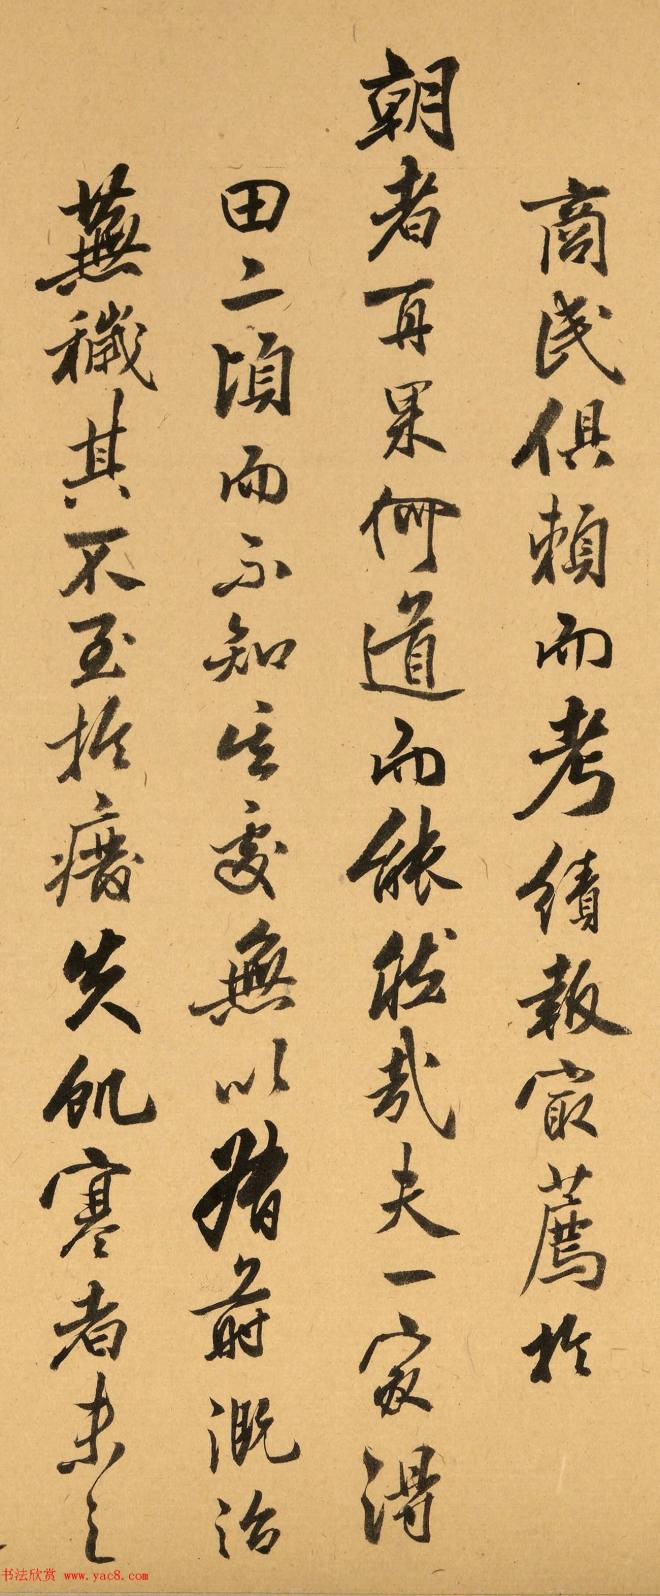 商民俱頼而考績報㝡薦於
朝者再果何道而能然哉夫一家得
田二頃而不知生處無以蓄溉治
蕪穢其不至於廢失飢寒者未之
书法欣赏 www.yac8.com